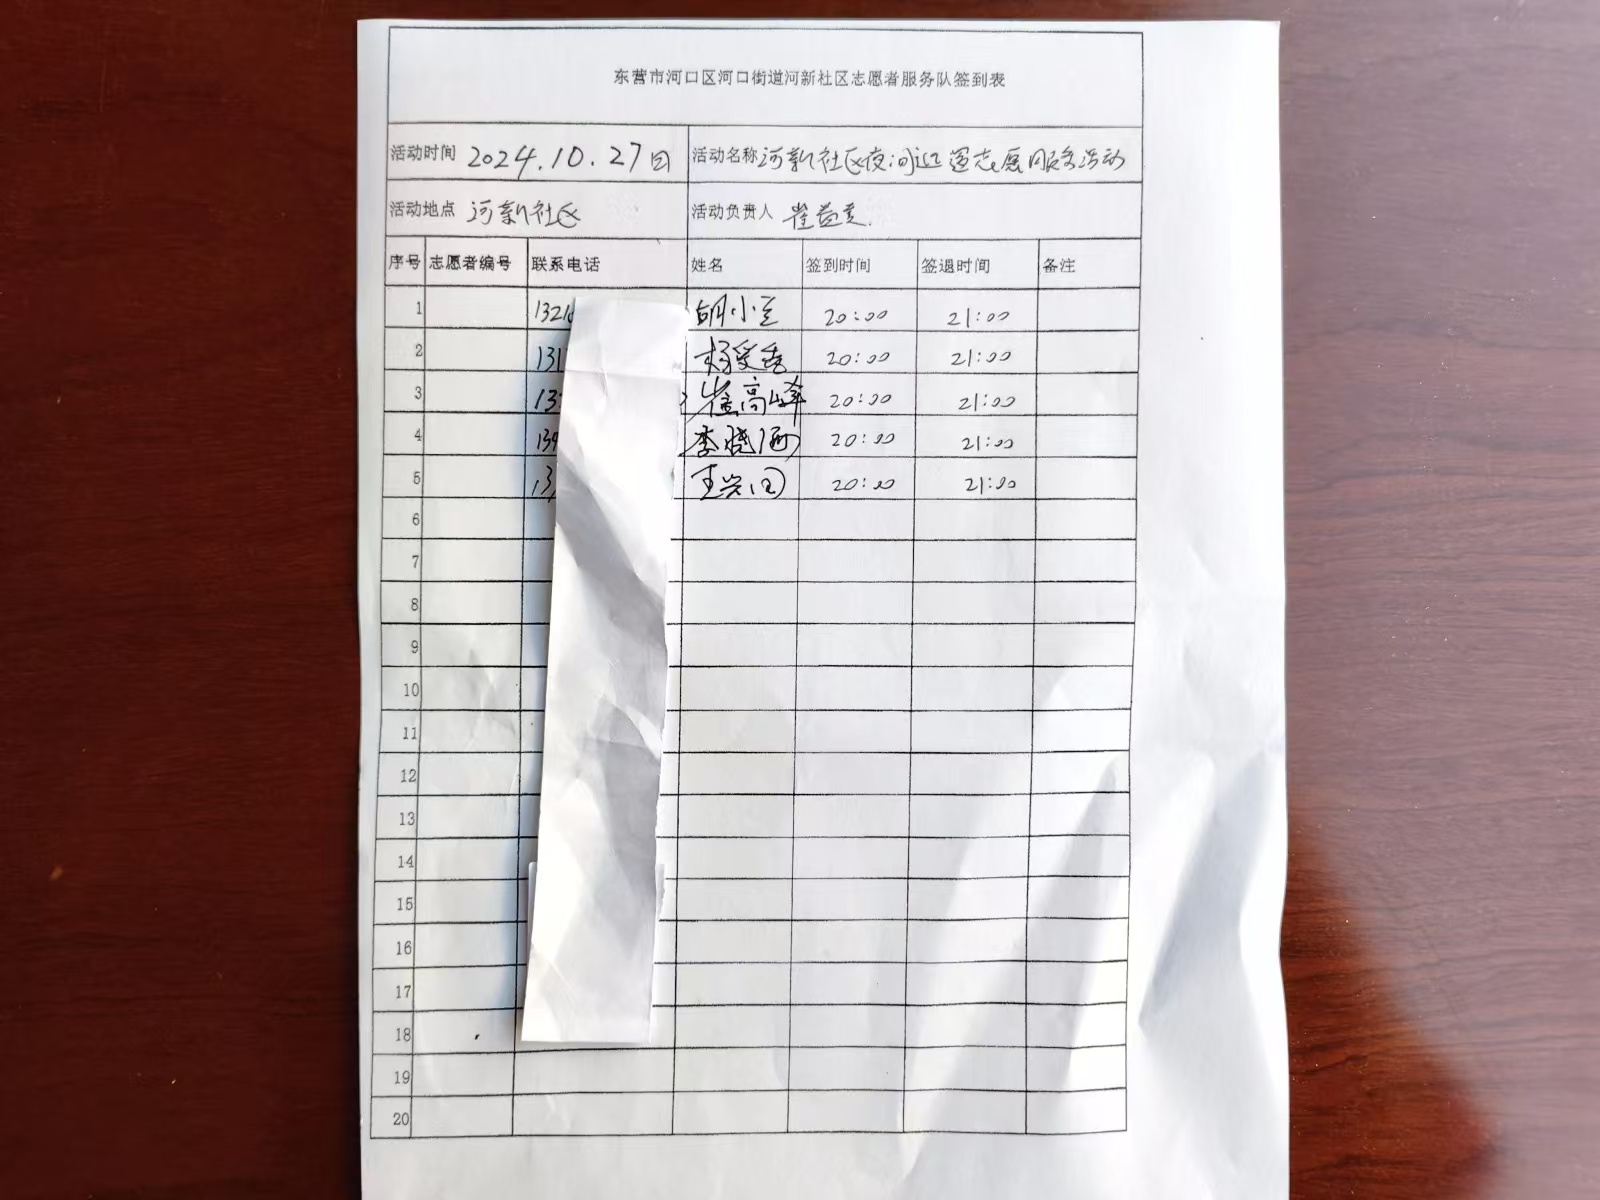 东营市河口区河口街道河新社区志愿者服务队签到表
活动时间 2024.10.27日 活动名称 河新社区夜间巡逻志愿服务活动
活动地点 河新社区 活动负责人 崔益
序号 志愿者编号 联系电话 姓名 签到时间 签退时间 备注
1 1321 胡小 20:00 21:00
2 131 杨爱香 20:00 21:00
3 13 崔高峰 20:00 21:00
4 139 李晓 20:00 21:00
5 13 王兴国 20:00 21:00
6
7
8
9
10
11
12
13
14
15
16
17
18
19
20